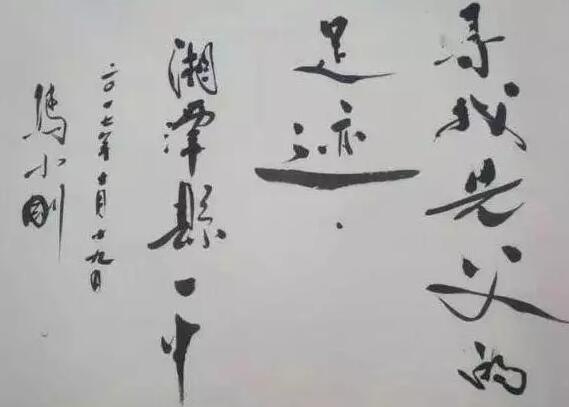 寻我先父的
足迹.
湘潭县一中
二〇一七年十月十九日
冯小刚